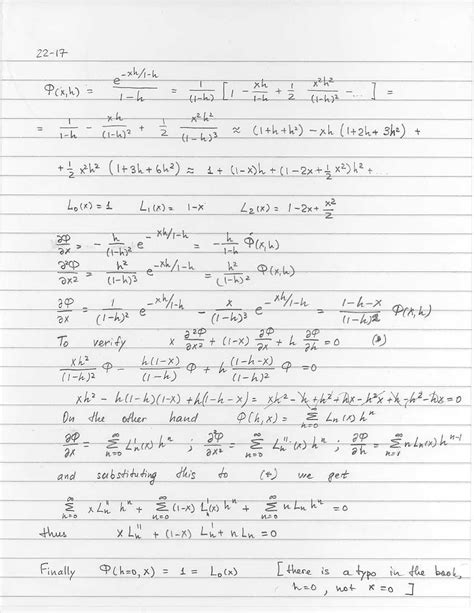 22-17
Φ(x,h) = e^{-xh/1-h} / (1-h) = 1/(1-h) [1 - xh/(1-h) + 1/2 x²h²/(1-h)² - ...] =
= 1/(1-h) - xh/(1-h)² + 1/2 x²h²/(1-h)³ ≈ (1+h+h²) - xh (1+2h+3h²) +
+ 1/2 x²h² (1+3h+6h²) ≈ 1 + (1-x)h + (1-2x+1/2 x²)h² + ...
L₀(x) = 1 L₁(x) = 1-x L₂(x) = 1-2x+x²/2
∂Φ/∂x = - h/(1-h)² e^{-xh/1-h} = - h/(1-h) Φ(x,h)
∂²Φ/∂x² = h²/(1-h)³ e^{-xh/1-h} = h²/(1-h)² Φ(x,h)
∂Φ/∂x = 1/(1-h)² e^{-xh/1-h} - x/(1-h)³ e^{-xh/1-h} = (1-h-x)/(1-h)² Φ(x,h)
To verify x ∂²Φ/∂x² + (1-x) ∂Φ/∂x + h ∂Φ/∂h = 0 (*)
xh²/(1-h)² Φ - h(1-x)/(1-h) Φ + h (1-h-x)/(1-h)² Φ = 0
xh² - h(1-h)(1-x) + h(1-h-x) = xh² - h + h² + hx - h²x + h - h² - hx = 0
On the other hand Φ(h,x) = Σ_{n=0}^∞ Lₙ(x) hⁿ
∂Φ/∂x = Σ_{n=0}^∞ Lₙ'(x) hⁿ ; ∂²Φ/∂x² = Σ_{n=0}^∞ Lₙ''(x) hⁿ ; ∂Φ/∂h = Σ_{n=1}^∞ n Lₙ(x) hⁿ⁻¹
and substituting this to (*) we get
Σ_{n=0}^∞ x Lₙ'' hⁿ + Σ_{n=0}^∞ (1-x) Lₙ'(x) hⁿ + Σ_{n=0}^∞ n Lₙ hⁿ = 0
thus x Lₙ'' + (1-x) Lₙ' + n Lₙ = 0
Finally Φ(h=0, x) = 1 = L₀(x) [there is a typo in the book,
h=0, not x=0]